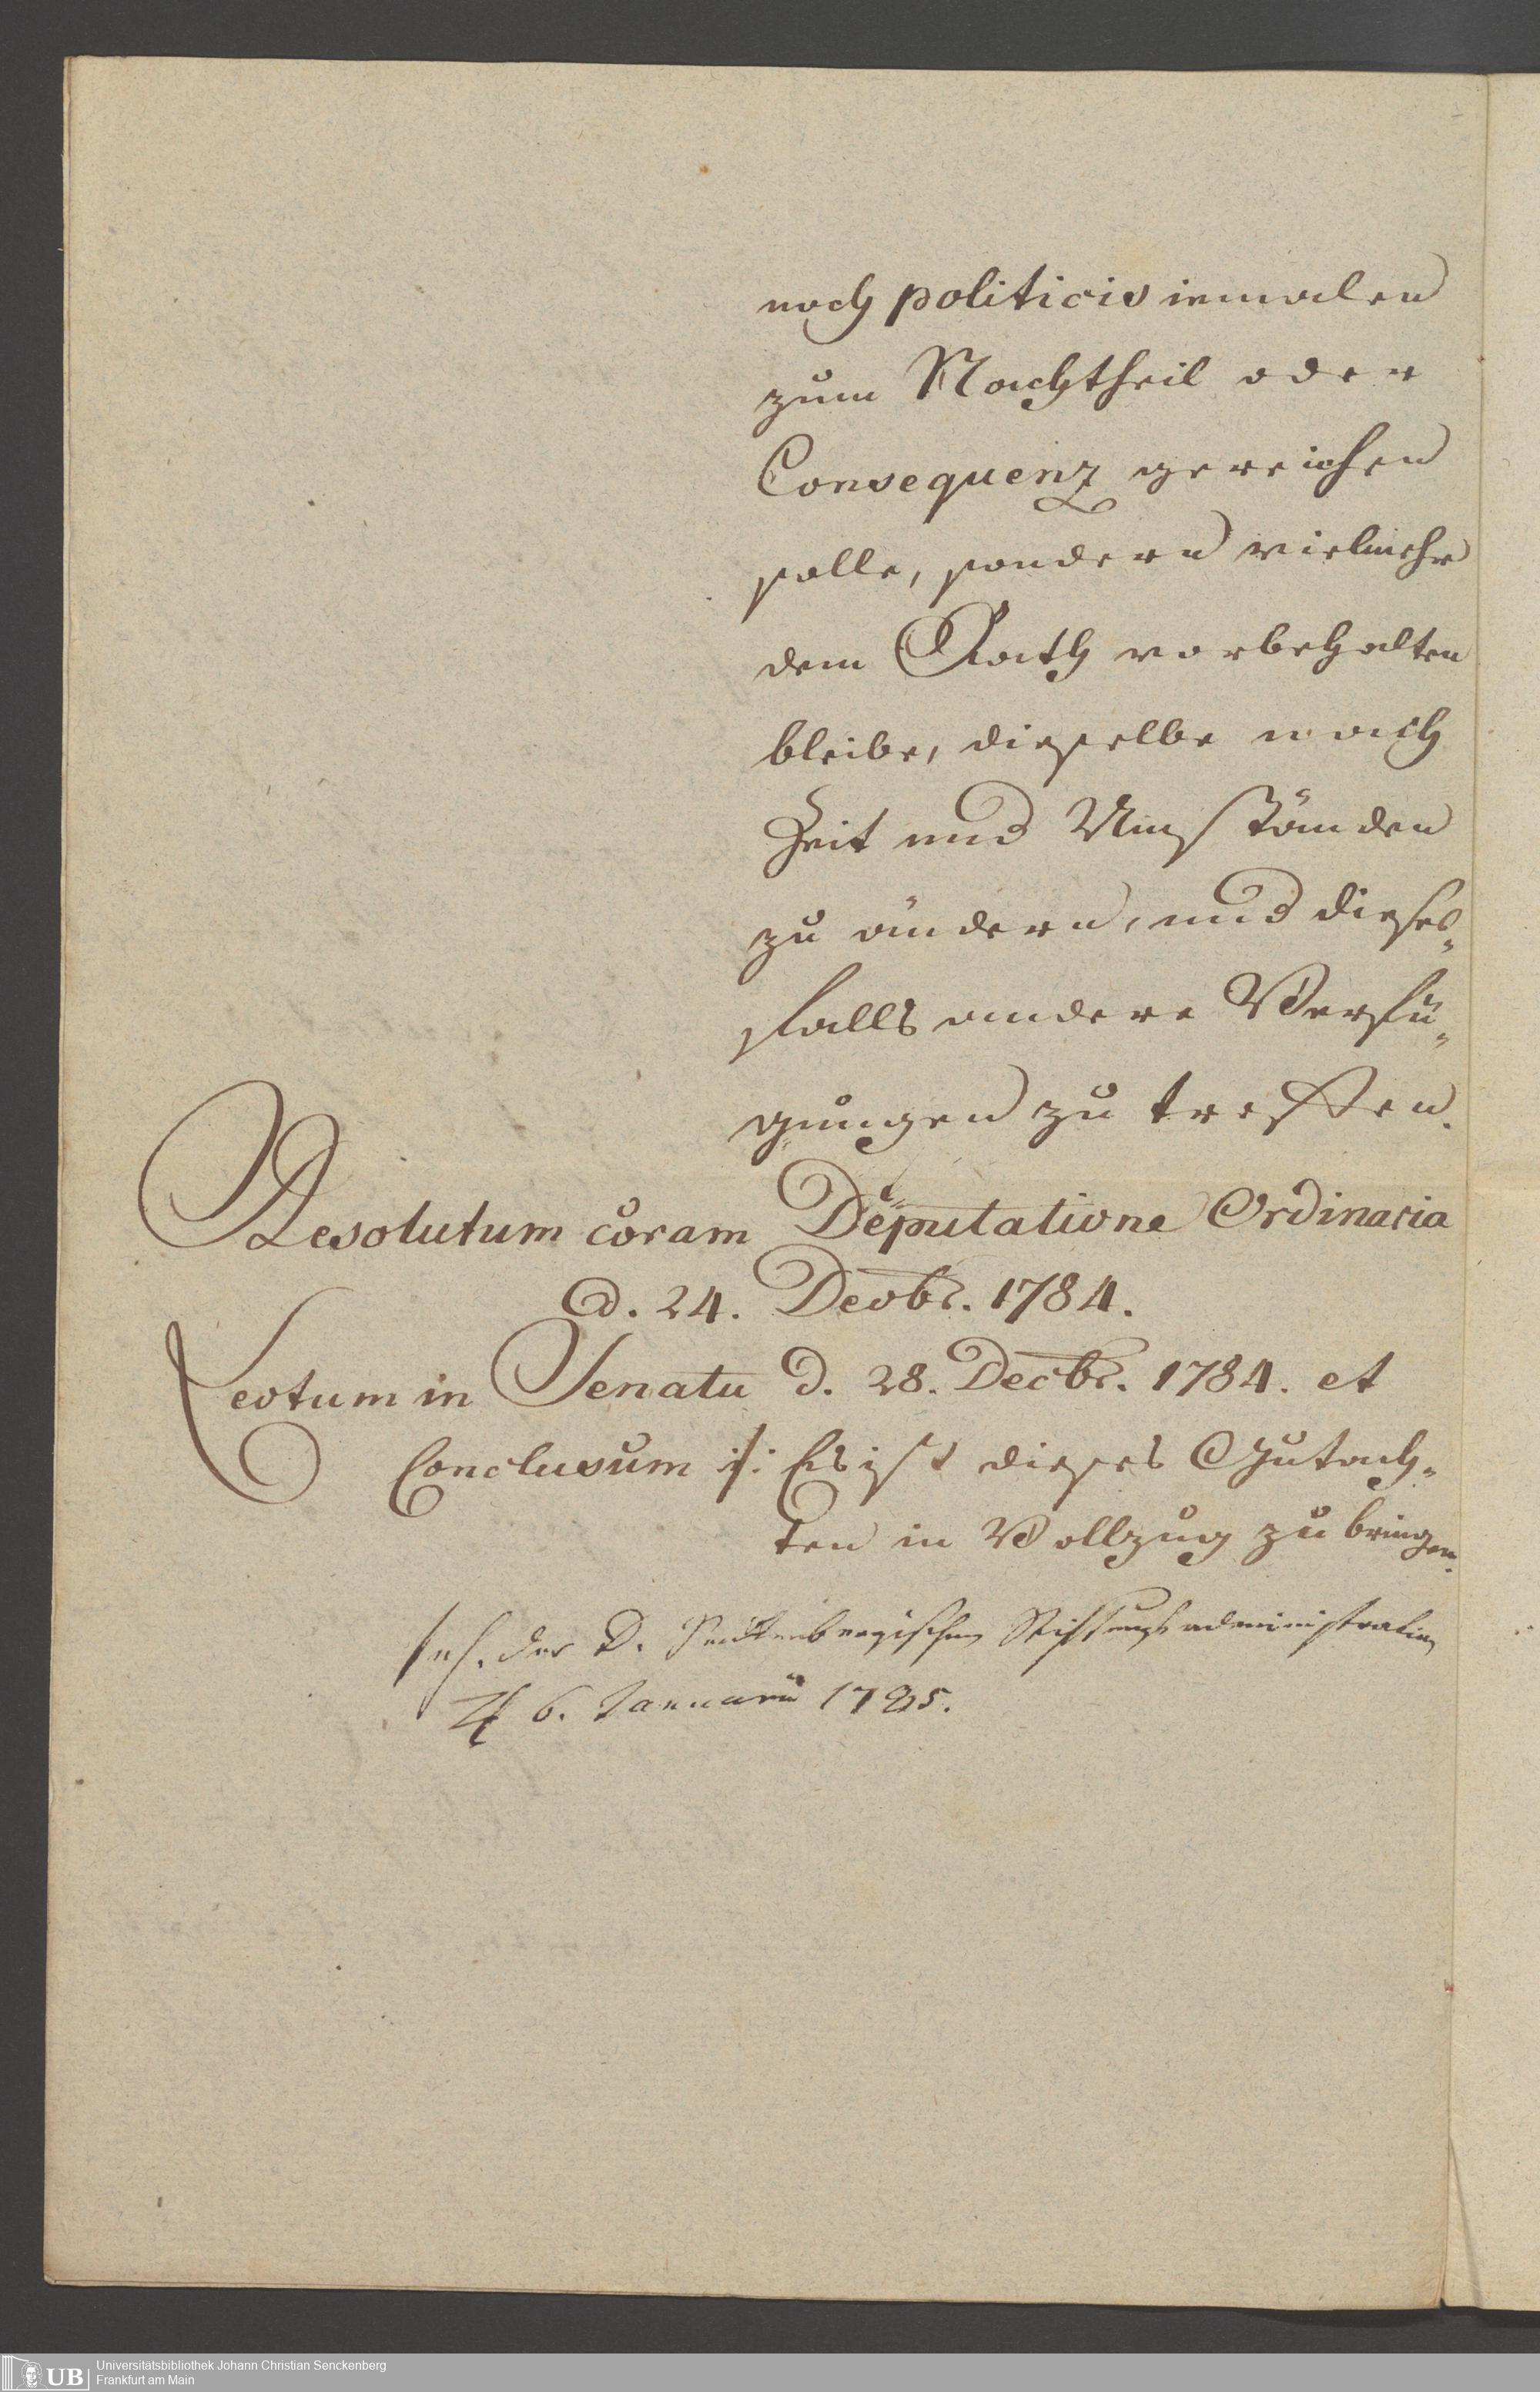 noch politicis iemalen
zum Nachtheil oder
Consequenz gereichen
solle, sondern vielmehr
dem Rath vorbehalten
bleibe, dieselbe nach
Zeit und Umständen
zu ändern, und dieses„
falls andere Verfü„
gungen zu treffen.
Resolutum coram Deputatione Ordinaria
d. 24. Decbr. 1784.
Lectum in Senatu d. 28. Decbr. 1784. et
Conclusum :/: Es ist dieses Gutach„
ten in Vollzug zu bringen.
der D. Senckenbergischen Stiftungsadministration
♃ 6. Januarii 1785.
UB
Universitätsbibliothek Johann Christian Senckenberg
Frankfurt am Main